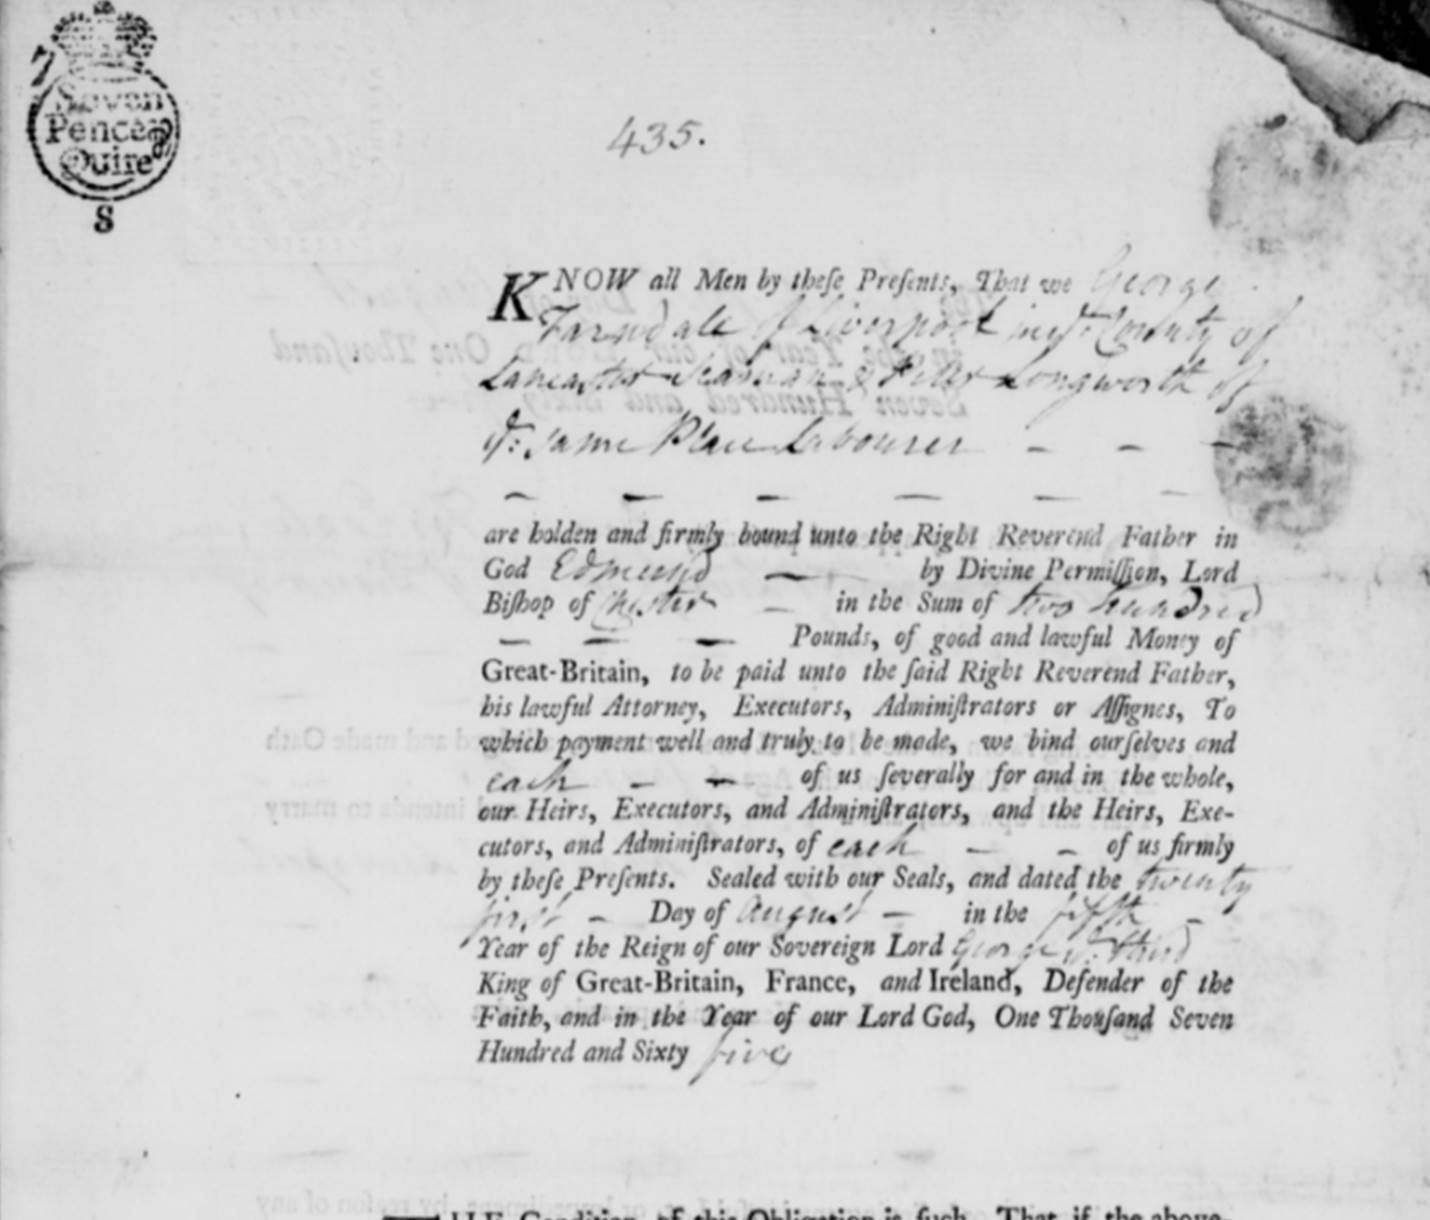 7
Seven
Pence ⅌
Quire
S
435.
KNOW all Men by theſe Preſents, That we George
Farndale of Liverpool in yᵉ County of
Lancaster Seaman & Peter Longworth of
yᵉ: same Place Labourer — — —
— — — — — —
are holden and firmly bound unto the Right Reverend Father in
God Edmund — by Divine Permiſſion, Lord
Biſhop of Chester — in the Sum of two Hundred
— — — Pounds, of good and lawful Money of
Great-Britain, to be paid unto the ſaid Right Reverend Father,
his lawful Attorney, Executors, Adminiſtrators or Aſſignes, To
which payment well and truly to be made, we bind ourſelves and
each — — of us ſeverally for and in the whole,
our Heirs, Executors, and Adminiſtrators, and the Heirs, Exe-
cutors, and Adminiſtrators, of each — — of us firmly
by theſe Preſents. Sealed with our Seals, and dated the twenty
first — Day of August — in the fifth —
Year of the Reign of our Sovereign Lord George yᵉ: third
King of Great-Britain, France, and Ireland, Defender of the
Faith, and in the Year of our Lord God, One Thouſand Seven
Hundred and Sixty five
THE Condition of this Obligation is ſuch, That if the above-